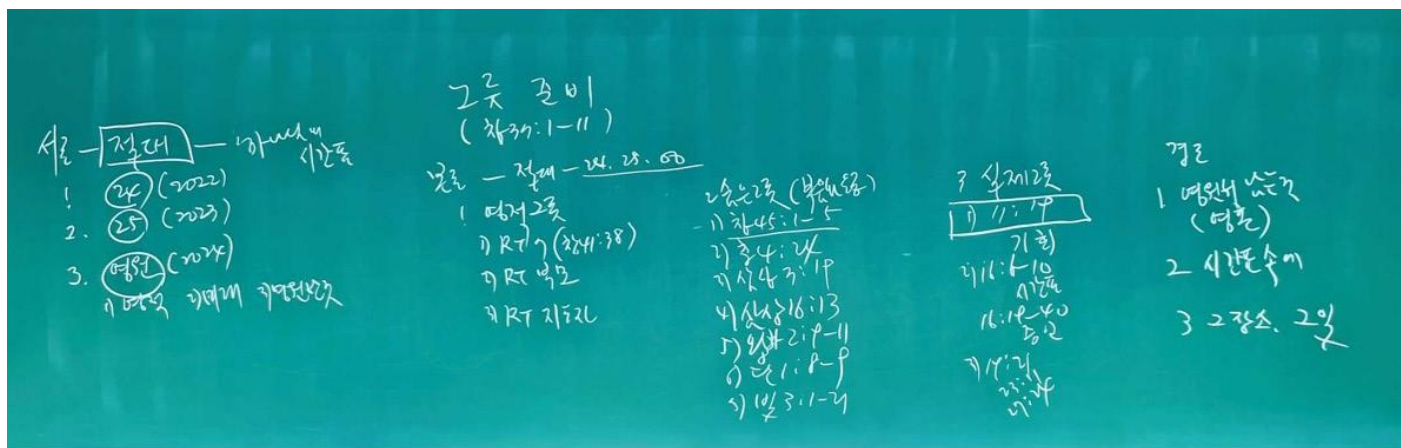 그릇 준비
(창37:1-11)
서론 — 절대 — 하나님의
시간표
1. 24 (2022)
2. 25 (2023)
3. 영원 (2024)
1) 영적 2) 미래 3)
본론 — 절대 — 24. 25. 00
1. 영적그릇
1) RT 7 (창41:38)
2) RT 부모
3) RT 지도자
2 숨은그릇
1) 창45:1-5
2) 출4:24
3) 삼상3:19
4) 삼상16:13
5) 왕하2:9-11
6) 단1:8-9
7) 빌3:1-21
3 실제그릇
1) 11:19
기회
2) 16:6-10
시간표
16:19-40
3) 19:21
23:11
27:24
결론
1 영원히 남는 것
(영혼)
2 시간표 속에
3 그 장소, 그 일